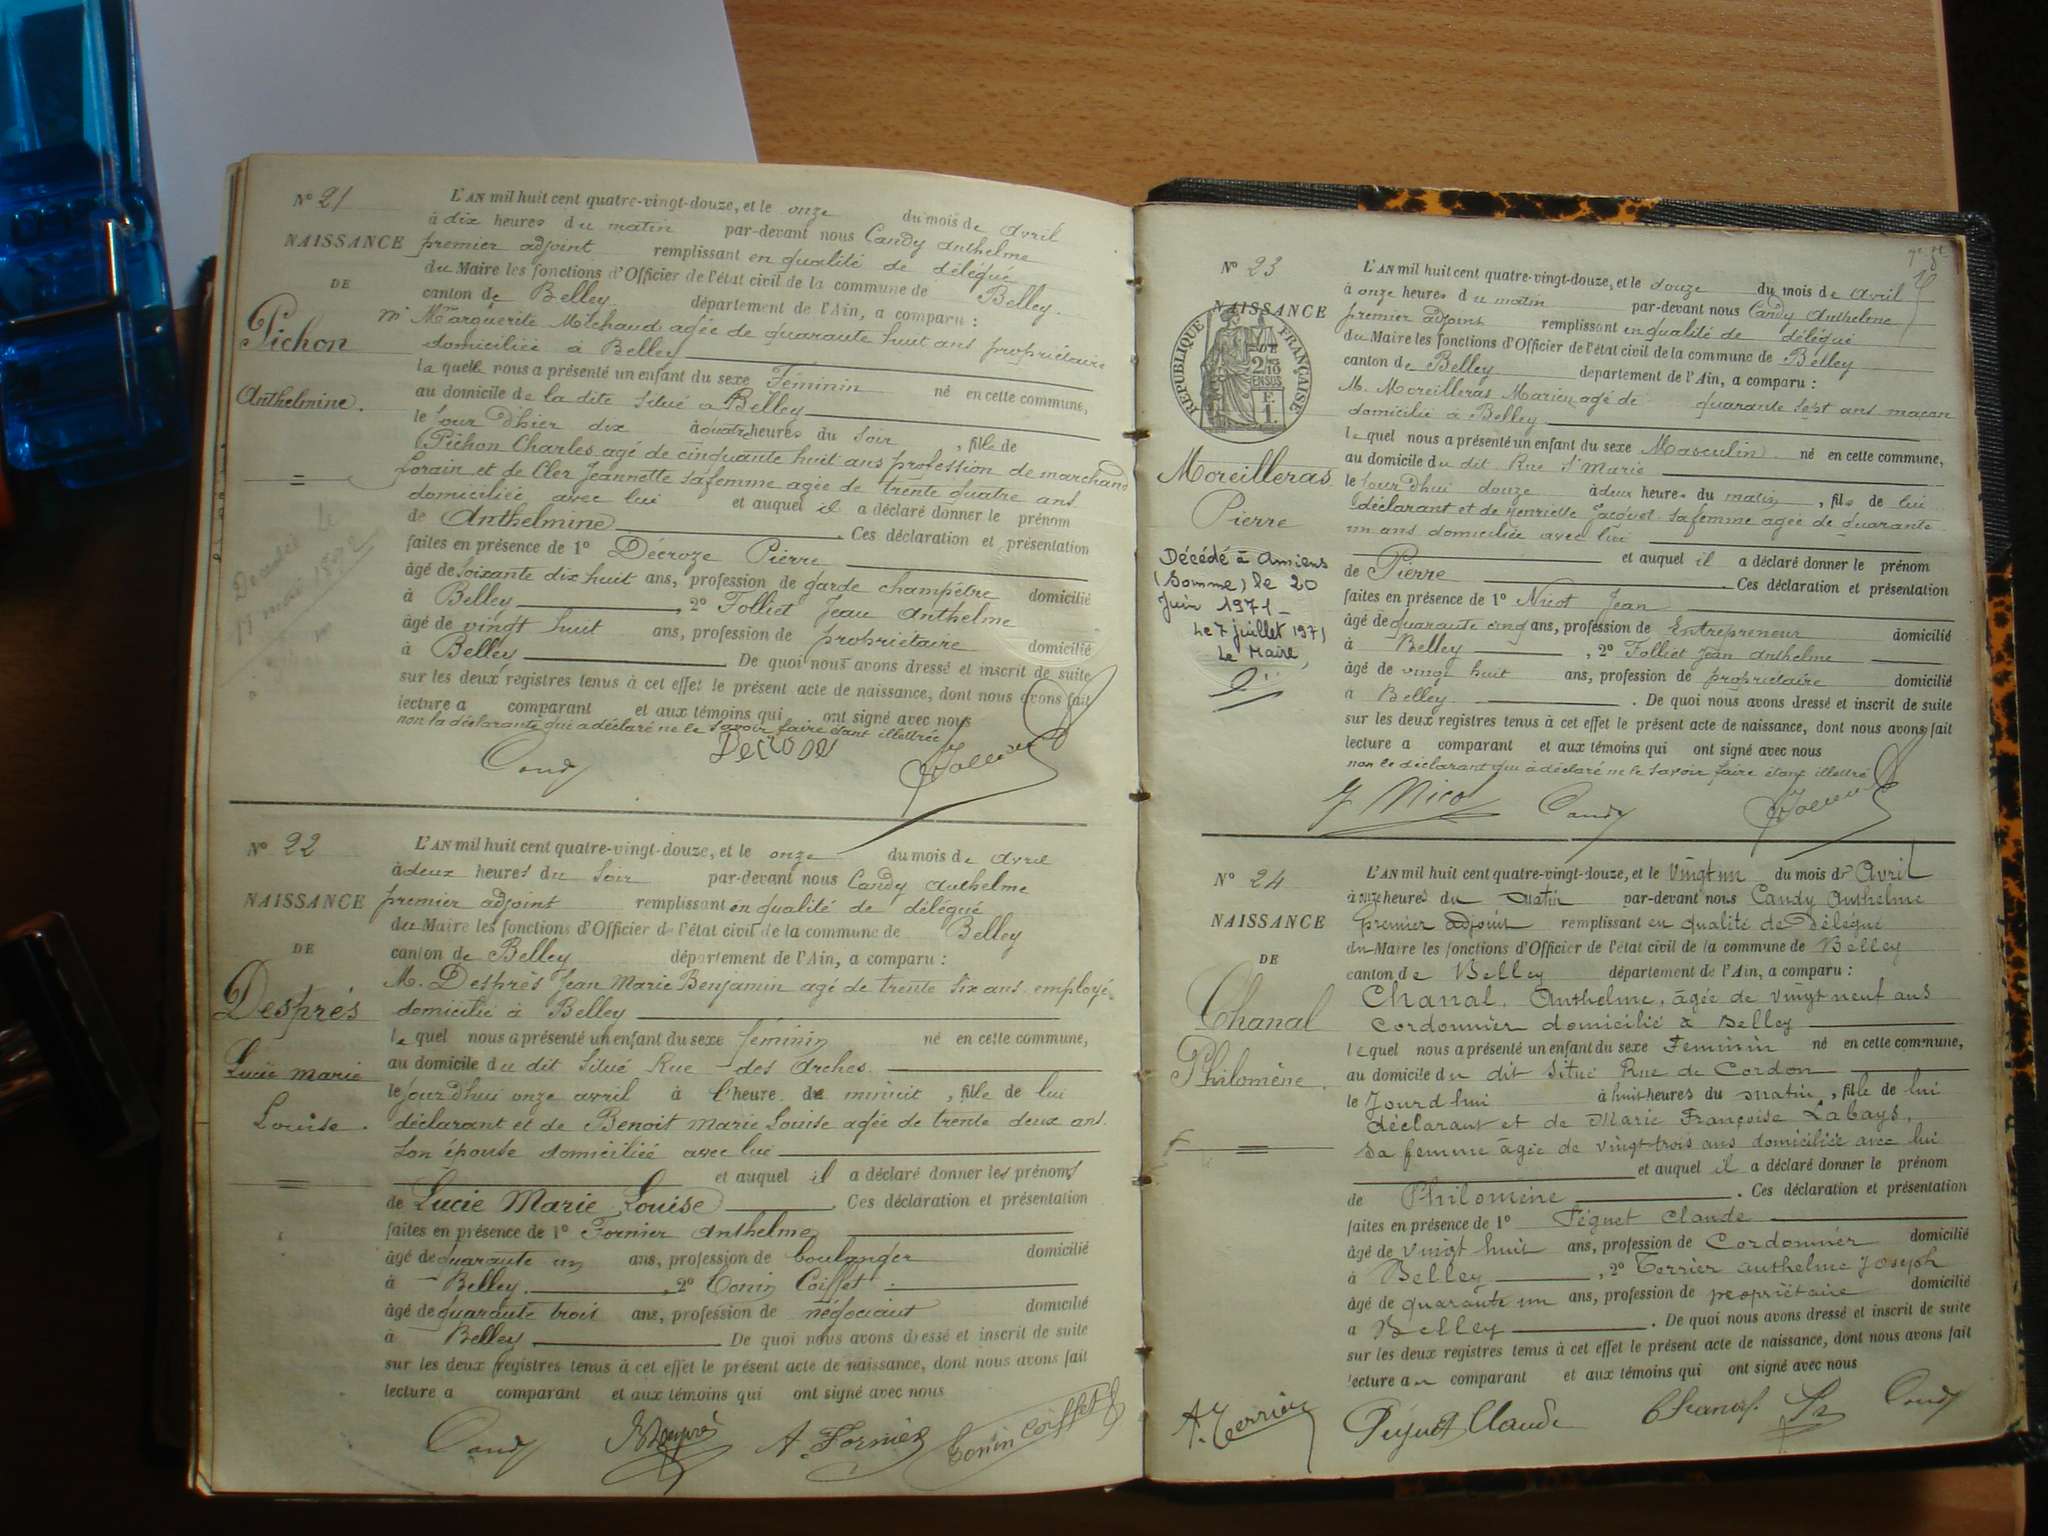 N° 21
NAISSANCE
DE
Pichon
Anthelmine.
Décédée le
11 mai 1892
L'AN mil huit cent quatre-vingt-douze, et le onze du mois de avril
à dix heures du matin par-devant nous Candy Anthelme
premier adjoint remplissant en qualité de délégué
du Maire les fonctions d'Officier de l'état civil de la commune de Belley
canton de Belley département de l'Ain, a comparu :
Marguerite Michaud agée de quarante huit ans propriétaire
domiciliée à Belley
la quelle nous a présenté un enfant du sexe Féminin né en cette commune,
au domicile de la dite situé a Belley
le Jour d'hier dix à quatre heures du soir, fille de
Pichon Charles agé de cinquante huit ans profession de marchand
forain et de Cler Jeannette sa femme agée de trente quatre ans
domiciliée avec lui et auquel il a déclaré donner le prénom
de Anthelmine. Ces déclaration et présentation
faites en présence de 1° Décroze Pierre
âgé de soixante dix huit ans, profession de garde champêtre domicilié
à Belley, 2° Folliet Jean Anthelme
âgé de vingt huit ans, profession de propriétaire domicilié
à Belley De quoi nous avons dressé et inscrit de suite
sur les deux registres tenus à cet effet le présent acte de naissance, dont nous avons fait
lecture a comparant et aux témoins qui ont signé avec nous
non la déclarante qui a déclaré ne le savoir faire étant illettrée
Candy Decroze Folliet
N° 22
NAISSANCE
DE
Desprès
Lucie Marie
Louise.
L'AN mil huit cent quatre-vingt-douze, et le onze du mois de avril
à deux heures du soir par-devant nous Candy Anthelme
premier adjoint remplissant en qualité de délégué
du Maire les fonctions d'Officier de l'état civil de la commune de Belley
canton de Belley département de l'Ain, a comparu :
M. Desprès Jean Marie Benjamin agé de trente six ans employé
domicilié à Belley
le quel nous a présenté un enfant du sexe féminin né en cette commune,
au domicile du dit situé Rue des Arches.
le Jour d'hui onze avril à l'heure de minuit, fille de lui
déclarant et de Benoit Marie Louise agée de trente deux ans
son épouse domiciliée avec lui
et auquel il a déclaré donner les prénoms
de Lucie Marie Louise. Ces déclaration et présentation
faites en présence de 1° Fornier Anthelme
âgé de quarante un ans, profession de boulanger domicilié
à Belley, 2° Tonin Coiffet
âgé de quarante trois ans, profession de négociant domicilié
à Belley De quoi nous avons dressé et inscrit de suite
sur les deux registres tenus à cet effet le présent acte de naissance, dont nous avons fait
lecture a comparant et aux témoins qui ont signé avec nous
Candy Desprès A. Fornier Tonin Coiffet
N° 23
NAISSANCE
RÉPUBLIQUE FRANÇAISE
2/10
EN SUS
F.
1.
Moreilleras
Pierre
Décédé à Amiens
(Somme) le 20
Juin 1971 -
Le 7 juillet 1971
Le Maire,
L'AN mil huit cent quatre-vingt-douze, et le douze du mois de avril
à onze heures du matin par-devant nous Candy Anthelme
premier adjoint remplissant en qualité de délégué
du Maire les fonctions d'Officier de l'état civil de la commune de Belley
canton de Belley département de l'Ain, a comparu :
M. Moreilleras Marien agé de quarante sept ans maçon
domicilié à Belley
le quel nous a présenté un enfant du sexe Masculin né en cette commune,
au domicile du dit Rue Ste Marie
le Jour d'hui douze à deux heures du matin, fils de lui
déclarant et de Henriette Jacquet sa femme agée de quarante
un ans domiciliée avec lui
et auquel il a déclaré donner le prénom
de Pierre. Ces déclaration et présentation
faites en présence de 1° Nicot Jean
âgé de quarante cinq ans, profession de Entrepreneur domicilié
à Belley, 2° Folliet Jean Anthelme
âgé de vingt huit ans, profession de propriétaire domicilié
à Belley. De quoi nous avons dressé et inscrit de suite
sur les deux registres tenus à cet effet le présent acte de naissance, dont nous avons fait
lecture a comparant et aux témoins qui ont signé avec nous
non le déclarant qui à déclaré ne le savoir faire étant illettré
J. Nicot Candy Folliet
N° 24
NAISSANCE
DE
Chanal
Philomène.
L'AN mil huit cent quatre-vingt-douze, et le Vingt un du mois de Avril
à onze heures du matin par-devant nous Candy Anthelme
premier adjoint remplissant en qualité de Délégué
du Maire les fonctions d'Officier de l'état civil de la commune de Belley
canton de Belley département de l'Ain, a comparu :
Chanal. Anthelme, agée de vingt neuf ans
Cordonnier domicilié à Belley
le quel nous a présenté un enfant du sexe Feminin né en cette commune,
au domicile du dit situé Rue de Cordon
le Jourd hui à huit heures du matin, fille de lui
déclarant et de Marie Françoise Labays,
sa femme agée de vingt trois ans domiciliée avec lui
et auquel il a déclaré donner le prénom
de Philomène. Ces déclaration et présentation
faites en présence de 1° Péguet Claude
âgé de vingt huit ans, profession de Cordonnier domicilié
à Belley, 2° Terrier Anthelme Joseph
âgé de quarante un ans, profession de propriétaire domicilié
a Belley. De quoi nous avons dressé et inscrit de suite
sur les deux registres tenus à cet effet le présent acte de naissance, dont nous avons fait
lecture au comparant et aux témoins qui ont signé avec nous
A. Terrier Péguet Claude Chanal Candy